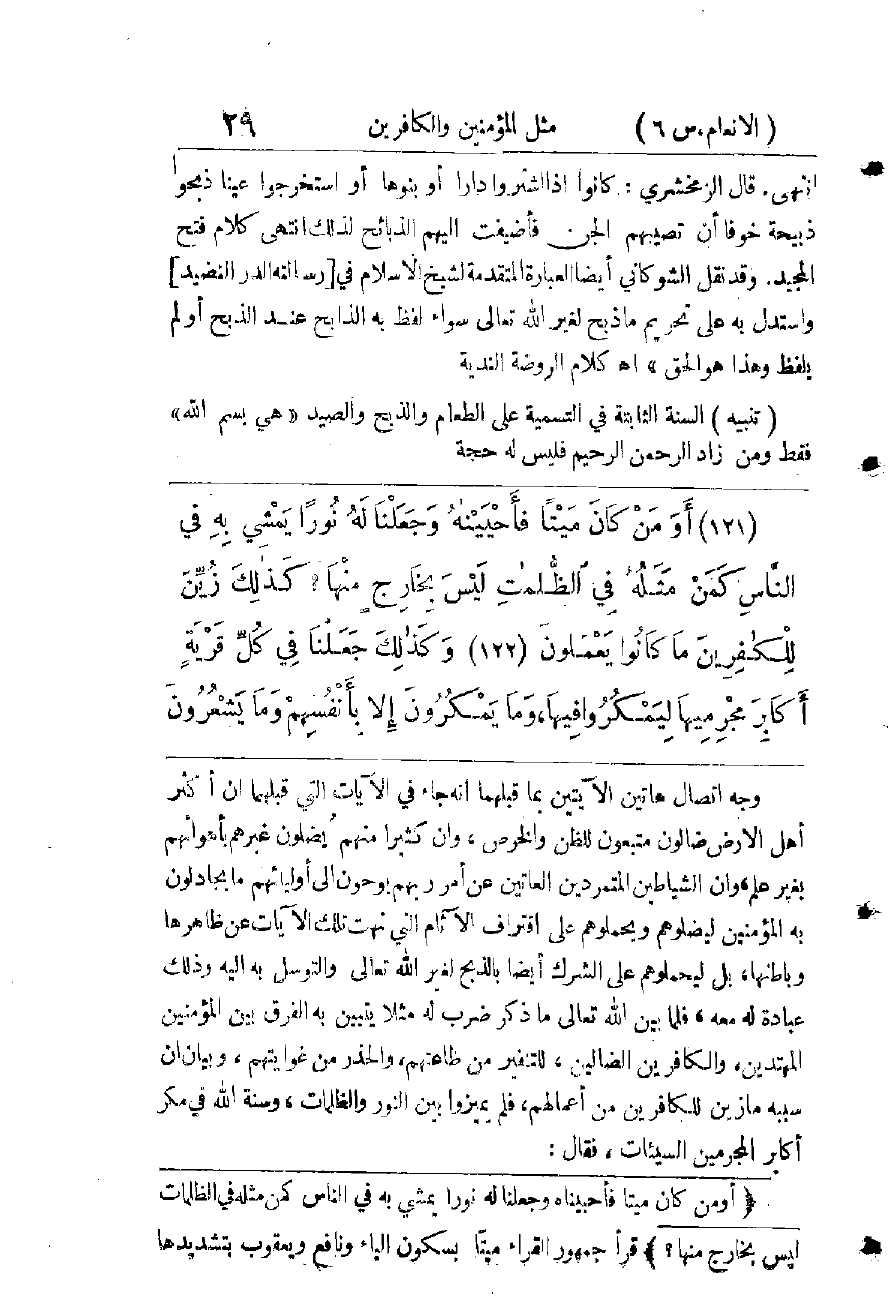 ( الانعام.س ٦ ) مثل المؤمنين والكافرين ٢٩
انتهى. قال الزمخشري : كانوا اذا اشتروا دارا أو بنوها أو استخرجوا عينا ذبحوا
ذبيحة خوفا أن تصيبهم الجن فأضيفت اليهم الذبائح لذلك انتهى كلام فتح
المجيد. وقد نقل الشوكاني أيضا العبارة المتقدمة لشيخ الاسلام في [رسالته الدر النضيد]
واستدل به على تحريم ماذبح لغير الله تعالى سواء لفظ به الذابح عند الذبح أو لم
يلفظ وهذا هو الحق » اه كلام الروضة الندية
( تنبيه ) السنة الثابتة في التسمية على الطعام والذبح والصيد « هي بسم الله»
فقط ومن زاد الرحمن الرحيم فليس له حجة
(١٢١) أَوَ مَنْ كَانَ مَيْتًا فَأَحْيَيْنٰهُ وَجَعَلْنَا لَهُ نُورًا يَمْشِي بِهِ فِي
النَّاسِ كَمَنْ مَثَلُهُ فِي الظُّلُمٰتِ لَيْسَ بِخَارِجٍ مِنْهَا ؟ كَذٰلِكَ زُيِّنَ
لِلْكٰفِرِينَ مَا كَانُوا يَعْمَلُونَ (١٢٢) وَكَذٰلِكَ جَعَلْنَا فِي كُلِّ قَرْيَةٍ
أَكَابِرَ مُجْرِمِيهَا لِيَمْكُرُوا فِيهَا، وَمَا يَمْكُرُونَ إِلا بِأَنْفُسِهِمْ وَمَا يَشْعُرُونَ
وجه اتصال هاتين الآيتين بما قبلهما انه جاء في الآيات التي قبلهما ان أكثر
أهل الارض ضالون متبعون للظن والخرص ، وان كثيرا منهم يضلون غيرهم بأهوائهم
بغير علم، وان الشياطين المتمردين العاتين عن أمر ربهم يوحون الى أوليائهم ما يجادلون
به المؤمنين ليضلوهم ويحملوهم على اقتراف الآثام التي نهت تلك الآيات عن ظاهرها
وباطنها، بل ليحملوهم على الشرك أيضا بالذبح لغير الله تعالى والتوسل به اليه وذلك
عبادة له معه ، فلما بين الله تعالى ما ذكر ضرب له مثلا يتبين به الفرق بين المؤمنين
المهتدين، والكافرين الضالين ، للتنفير من طاعتهم، والحذر من غوايتهم ، وبيان ان
سببه مازين للكافرين من أعمالهم، فلم يميزوا بين النور والظلمات ، وسنة الله في مكر
أكابر المجرمين السيئات ، فقال :
﴿ أومن كان ميتا فأحييناه وجعلنا له نورا يمشي به في الناس كمن مثله في الظلمات
ليس بخارج منها ؟ ﴾ قرأ جمهور القراء ميتا بسكون الياء ونافع ويعقوب بتشديدها